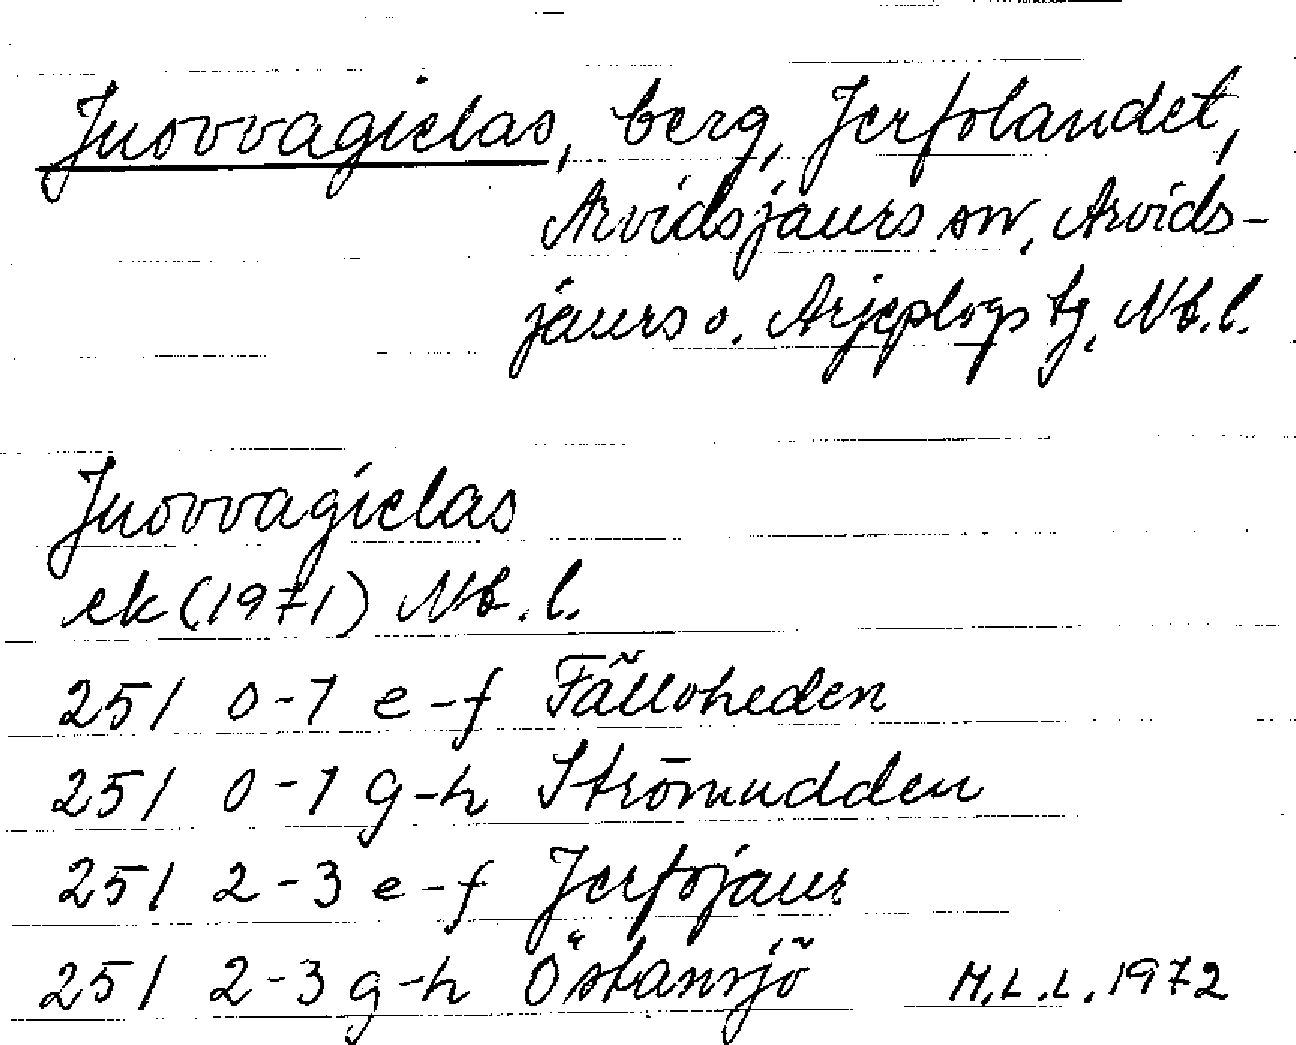 Juovvagielas, berg, Jerfolandet,
Arvidsjaurs sn, Arvids-
jaurs o. Arjeplogs tg, Nb.l.
Juovvagielas
ek (1971) Nb.l.
251 0-1 e-f Fälloheden
251 0-1 g-h Strömudden
251 2-3 e-f Jerfojaur
251 2-3 g-h Östansjö M.L.L. 1972